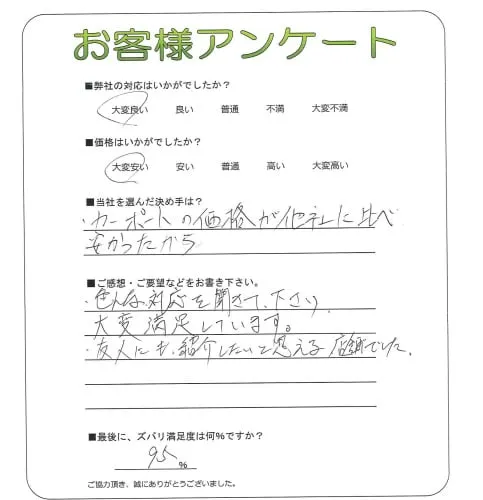 お客様アンケート
■弊社の対応はいかがでしたか？
大変良い 良い 普通 不満 大変不満
■価格はいかがでしたか？
大変安い 安い 普通 高い 大変高い
■当社を選んだ決め手は？
・カーポートの価格が他社に比べ
安かったから
■ご感想・ご要望などをお書き下さい。
・色んな対応を聞きて下さり、
大変満足しています。
・友人にも、紹介したいと思える店舗でした。
■最後に、ズバリ満足度は何%ですか？
95%
ご協力頂き、誠にありがとうございました。